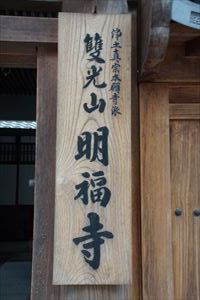 浄土真宗本願寺派
雙光山
明福寺